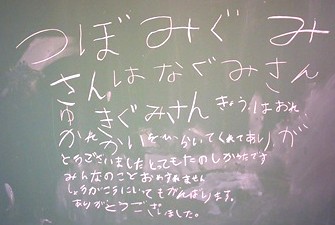 つぼみぐみ
さんはなぐみさん
ゆきぐみさんきょうはおわ
かれかいをひらいてくれてありが
とうございましたとってもたのしかったです
みんなのことおわすれません
しょうがっこうにいってもがんばります。
ありがとうございました。